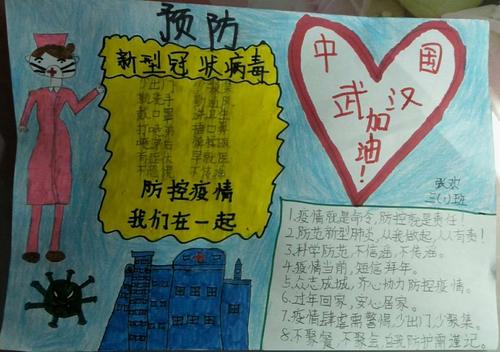 预防
新型冠状病毒
防控疫情
我们在一起
中国
武汉
加油!
张欢
三(1)班
1.疫情就是命令,防控就是责任!
2.防范新型肺炎,从我做起,人人有责!
3.科学防范,不信谣,不传谣。
4.疫情当前,短信拜年。
5.众志成城,齐心协力防控疫情。
6.过年回家,安心居家。
7.疫情肆虐需警惕,少出门少聚集。
8.不聚餐,不聚会,自我防护需谨记。